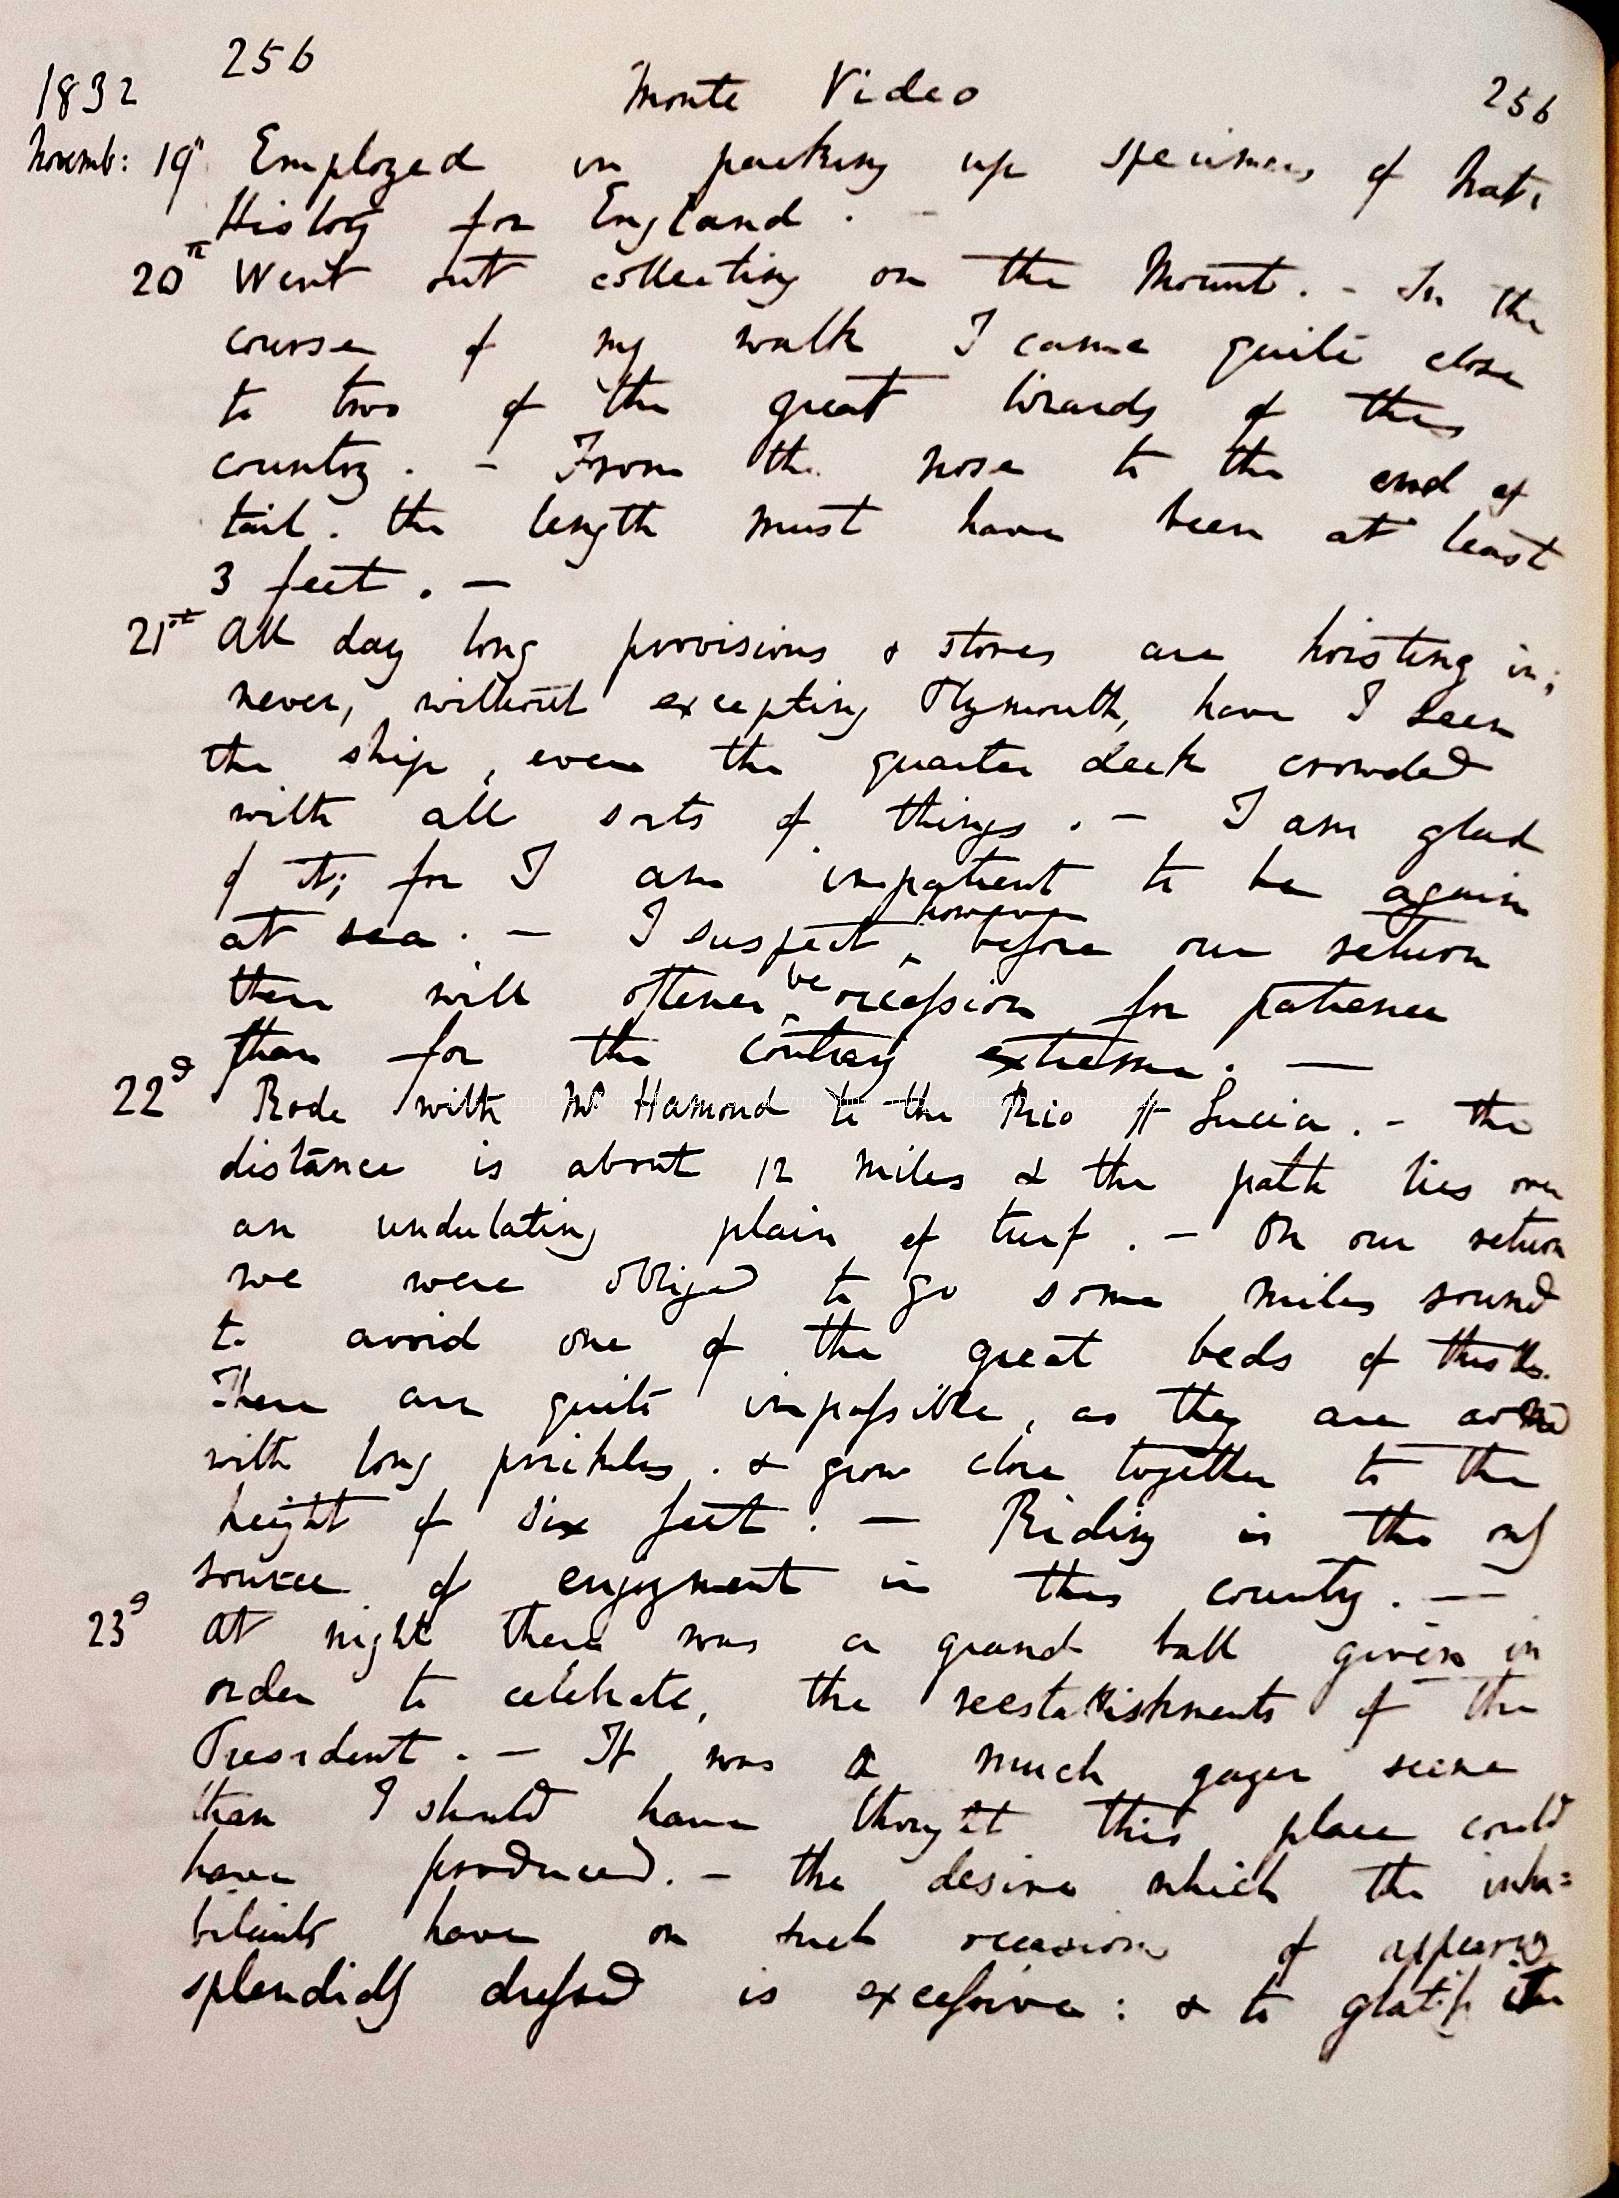 256
1832 Monte Video 256
Novemb: 19th Employed in packing up specimens of Nat:
History for England. –
20th Went out collecting on the Mount. – In the
course of my walk I came quite close
to two of the great lizards of this
country. – From the nose to the end of
tail. the length must have been at least
3 feet. —
21st All day long provisions & stores are hoisting in;
never, without excepting Plymouth, have I seen
the ship, even the quarter deck crowded
with all sorts of things. – I am glad
of it; for I am impatient to be again
at sea. – I suspect however before our return
there will oftener be occasion for patience
than for the contrary extreme. —
22d Rode with Mr Hamond to the Rio St Lucia. – the
distance is about 12 miles & the path lies over
an undulating plain of turf. – On our return
we were obliged to go some miles round
to avoid one of the great beds of thistles.
These are quite impassible, as they are armed
with long prickles. & grow close together to the
height of six feet. — Riding is the only
source of enjoyment in this country. —
23d At night there was a grand ball given in
order to celebrate, the reestablishments of the
President. – It was a much gayer scene
than I should have thought this place could
have produced. – the desire which the inha=
bitants have on such occasions of appearing
splendidly dressed is excessive: & to gratify it the